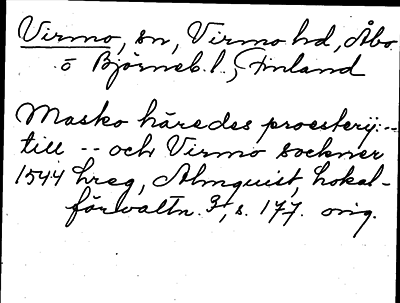 Virmo, sn, Virmo hd, Åbo
o Björneb. l., Finland
Masko häredes proestery: --
till -- och Virmo sockner
1544 hreg, Almquist, Lokal-
förvaltn. 3, s. 177. orig.